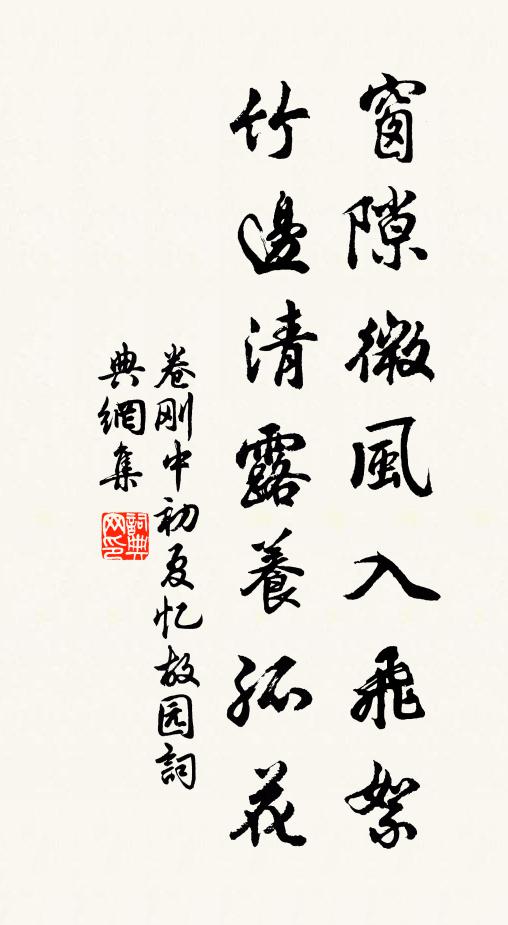 窗隙微風入飛絮
竹邊清露養孤花
卷刚中初夏忆故园詞
典網集
詞典網印